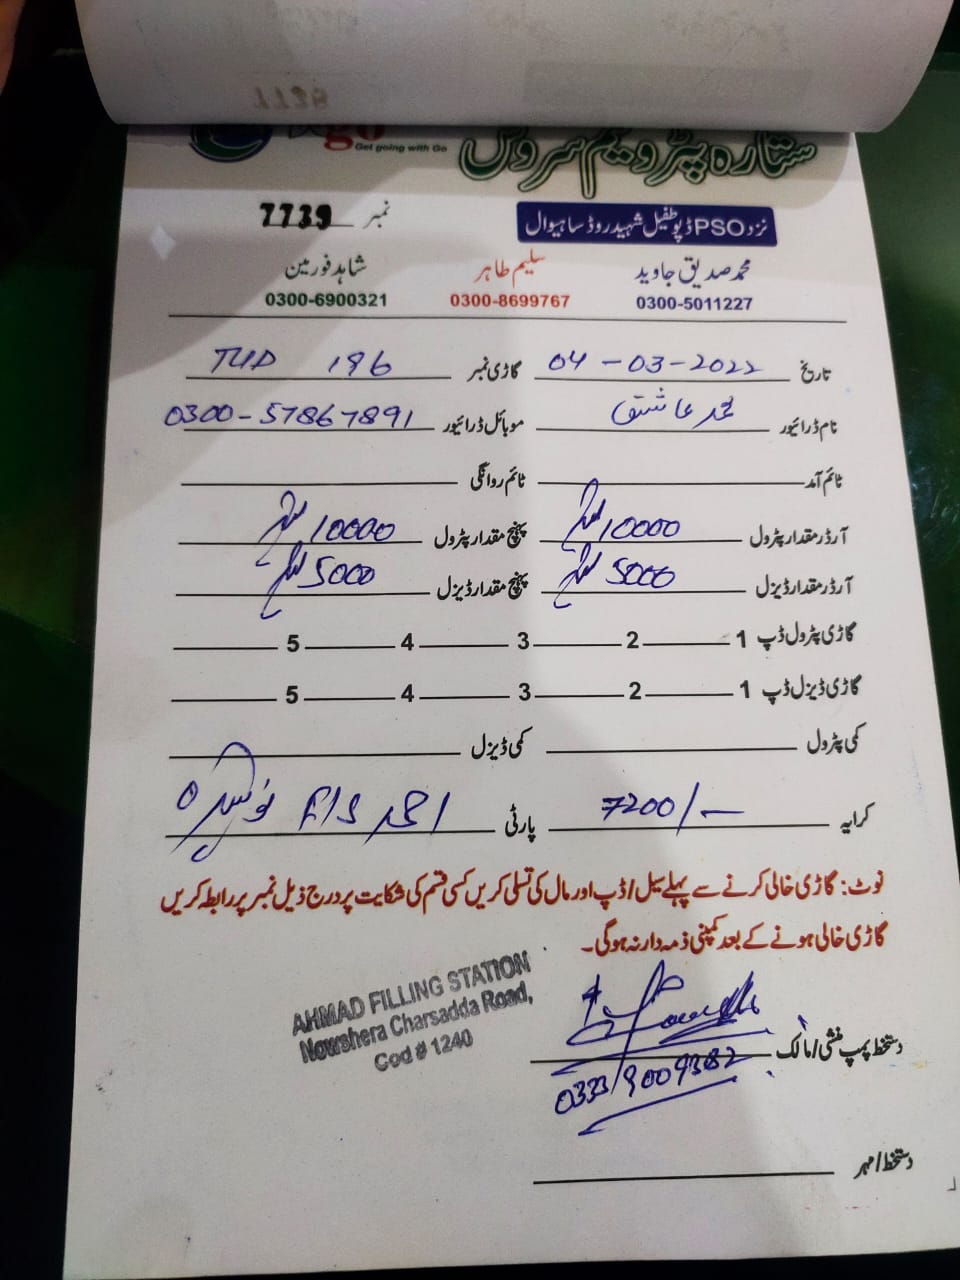 go
Get going with Go
ستارہ پٹرولیم سروس
نمبر 7739
نزد PSO ڈپو طفیل شہید روڈ ساہیوال
محمد صدیق جاوید سلیم طاہر شاہد فورمین
0300-5011227 0300-8699767 0300-6900321
تاریخ 04-03-2022 گاڑی نمبر TUD 196
نام ڈرائیور محمد عاشق موبائل ڈرائیور 0300-57867891
ٹائم آمد ٹائم روانگی
آرڈر مقدار پٹرول 10000 لیٹر پہنچ مقدار پٹرول 10000 لیٹر
آرڈر مقدار ڈیزل 5000 لیٹر پہنچ مقدار ڈیزل 5000 لیٹر
گاڑی پٹرول ڈپ 1 2 3 4 5
گاڑی ڈیزل ڈپ 1 2 3 4 5
کمی پٹرول کمی ڈیزل
کرایہ 7200/- پارٹی احمد F/S نوشہرہ
نوٹ: گاڑی خالی کرنے سے پہلے سیل/ڈپ اور مال کی تسلی کریں کسی قسم کی شکایت پر درج ذیل نمبر پر رابطہ کریں
گاڑی خالی ہونے کے بعد کمپنی ذمہ دار نہ ہوگی۔
AHMAD FILLING STATION
Nowshera Charsadda Road,
Cod # 1240
دستخط پمپ منشی/مالک
0333/9009382
دستخط/مہر